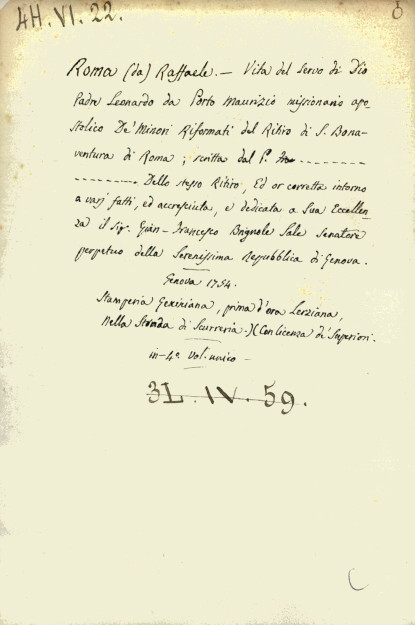 4H.VI.22.
Roma (da) Raffaele. — Vita del Servo di Dio
Padre Leonardo da Porto Maurizio missionario apo-
stolico De' Minori Riformati del Ritiro di S. Bona-
ventura di Roma; scritta dal P. - - - - - - - - - -
- - - - - - - - - - Dello stesso Ritiro, Ed or corretta intorno
a varj fatti, ed accresciuta, e dedicata a Sua Eccellen
za il Sig. Gian-Francesco Brignole Sale Senatore
perpetuo della Serenissima Repubblica di Genova.
Genova 1754.
Stamperia Gexiniana, prima d'ora Lerziana,
nella Strada di Scurreria.)(Con licenza de' Superiori.
in-4º Vol. unico —
3L.IV.59.